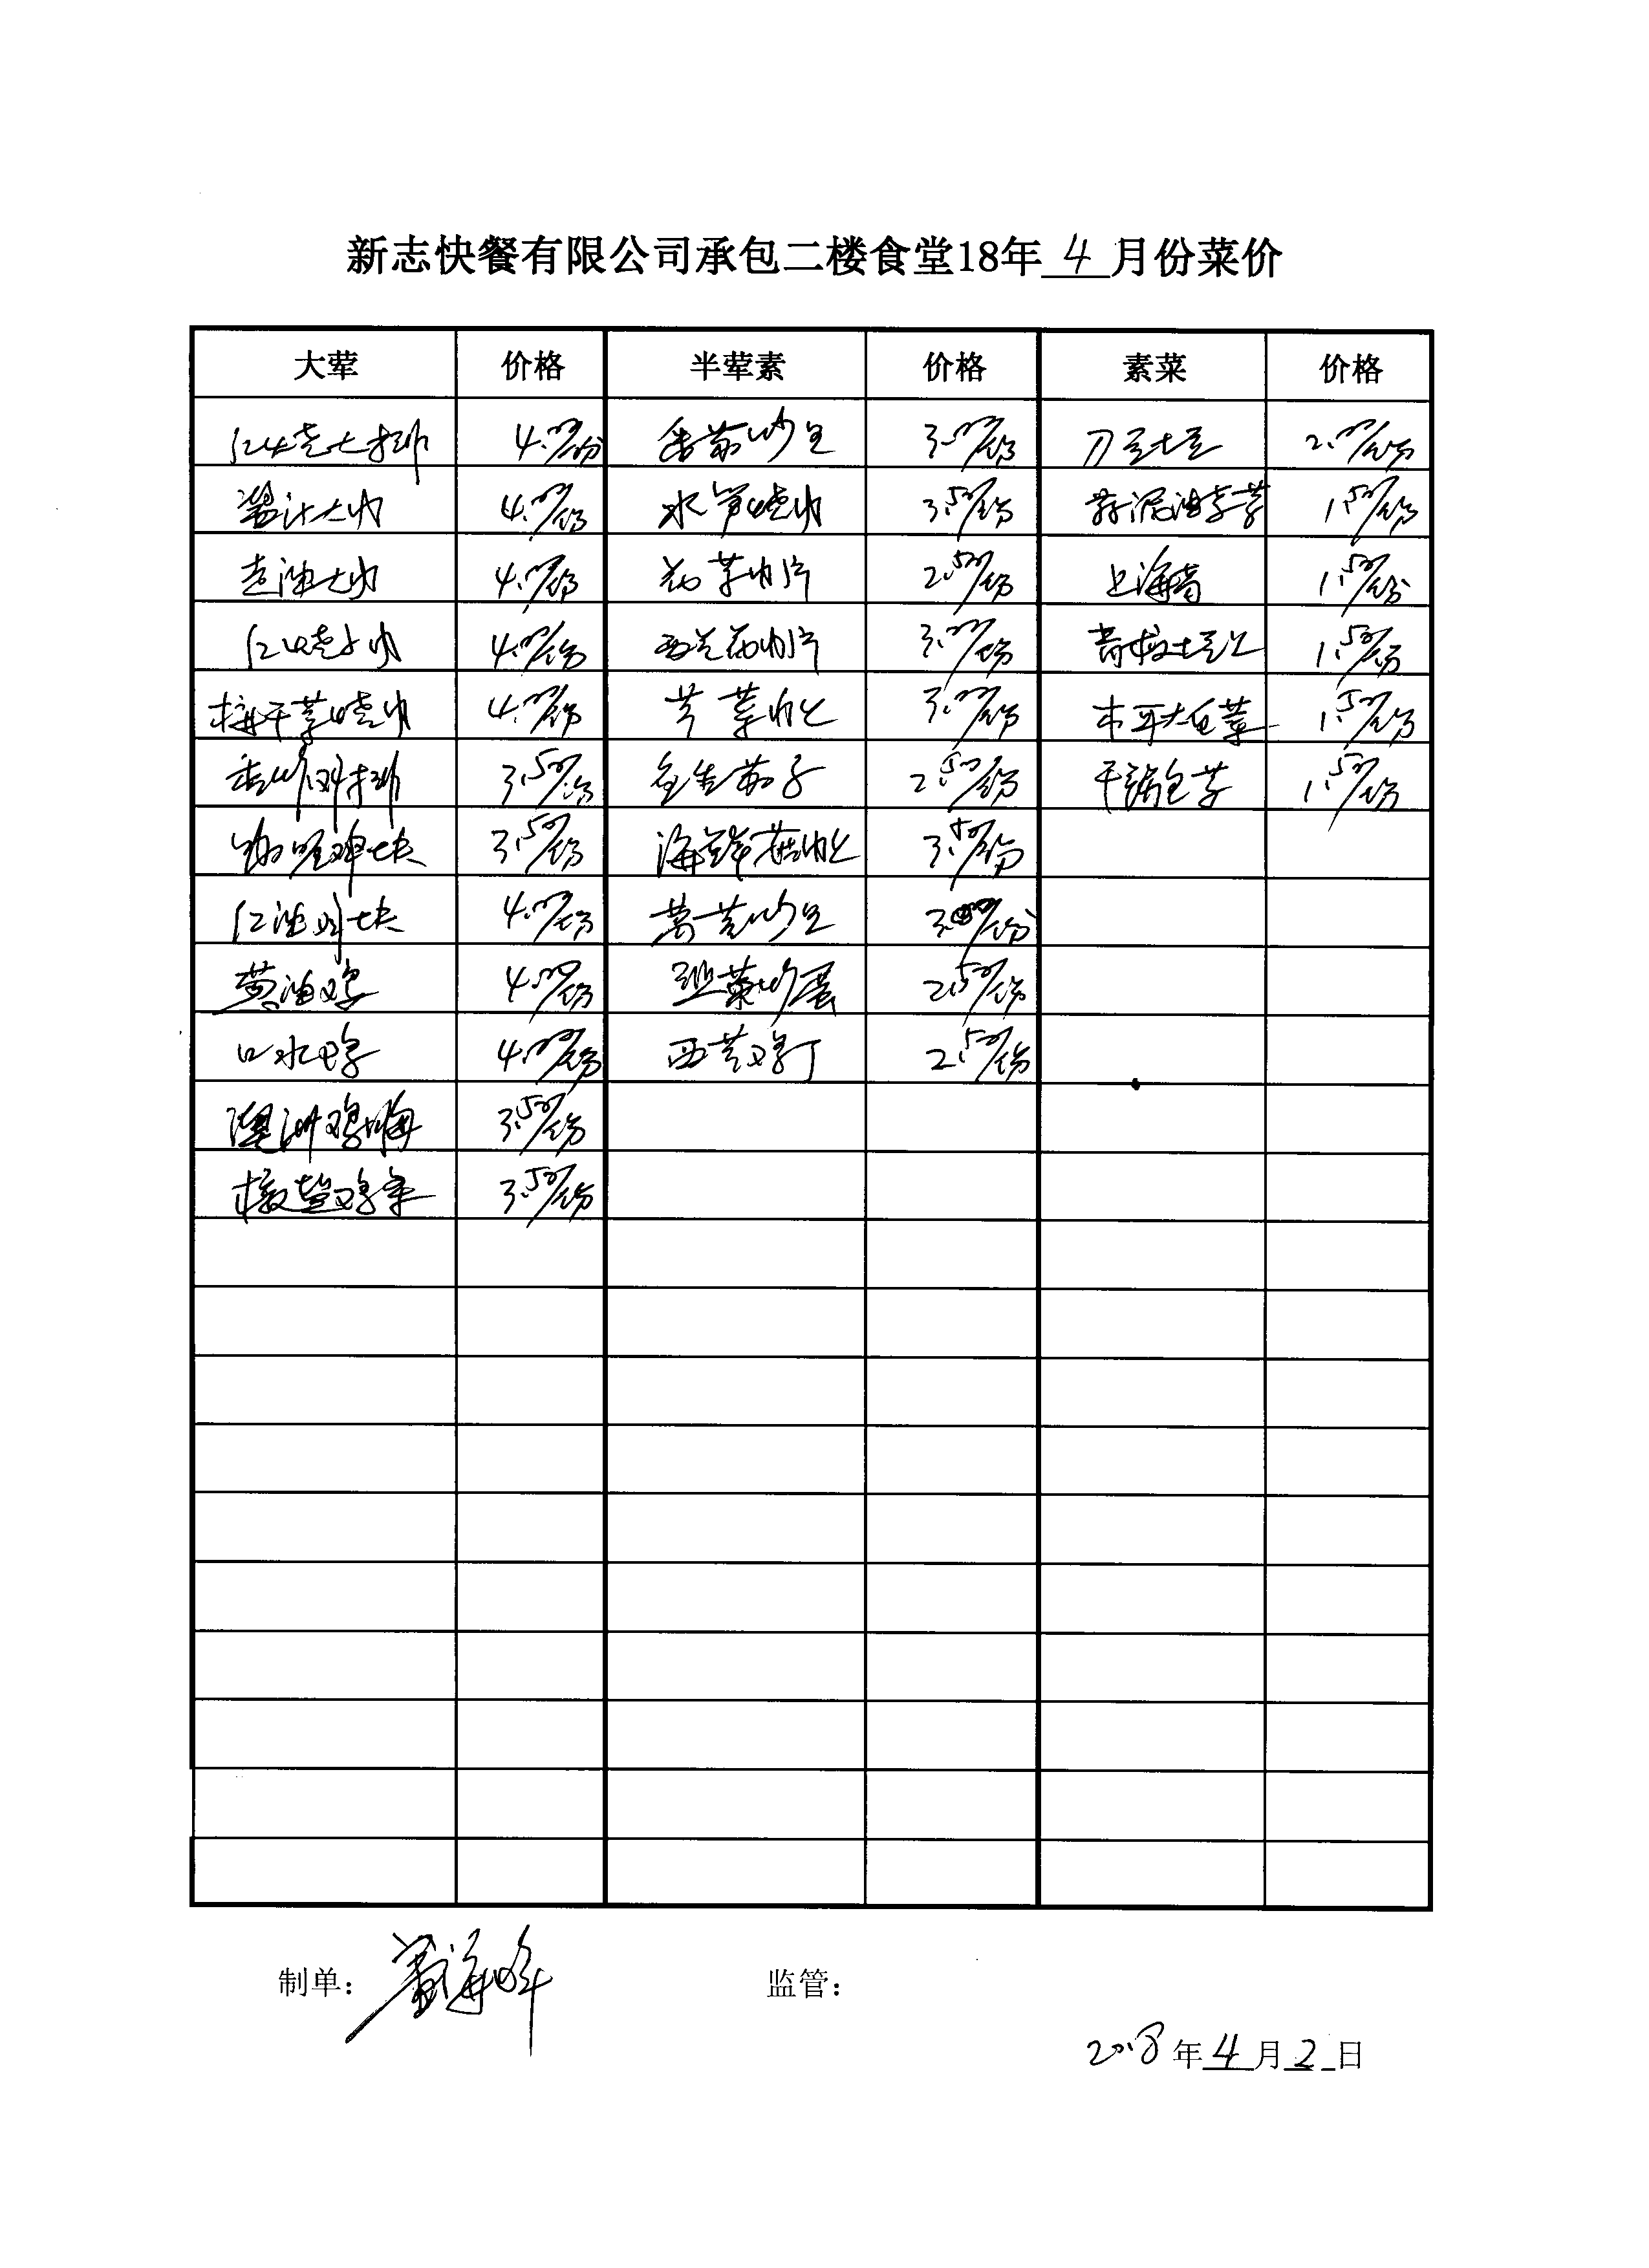 新志快餐有限公司承包二楼食堂18年4月份菜价
大荤 价格 半荤素 价格 素菜 价格
红烧大排 4.00/份 番茄炒蛋 3.00/份 刀豆土豆 2.00/份
酱汁大肉 4.00/份 水笋烧肉 3.50/份 蒜泥油麦菜 1.50/份
走油大肉 4.00/份 花菜肉片 2.50/份 上海青 1.50/份
红烧大肉 4.00/份 西兰花肉片 3.00/份 青椒土豆丝 1.50/份
梅干菜烧肉 4.00/份 芹菜肉丝 3.00/份 木耳大白菜 1.50/份
香炸鸡排 3.50/份 茄子 2.50/份 干锅包菜 1.50/份
咖喱鸡块 3.50/份 海鲜菇肉丝 3.50/份
红油鸡块 4.00/份 莴苣炒蛋 3.00/份
黄油鸡 4.00/份 韭菜炒蛋 2.50/份
口水鸡 4.00/份 西芹鸡丁 2.50/份
澳洲鸡 3.50/份
椒盐鸡 3.50/份
制单: 监管:
2018年4月2日